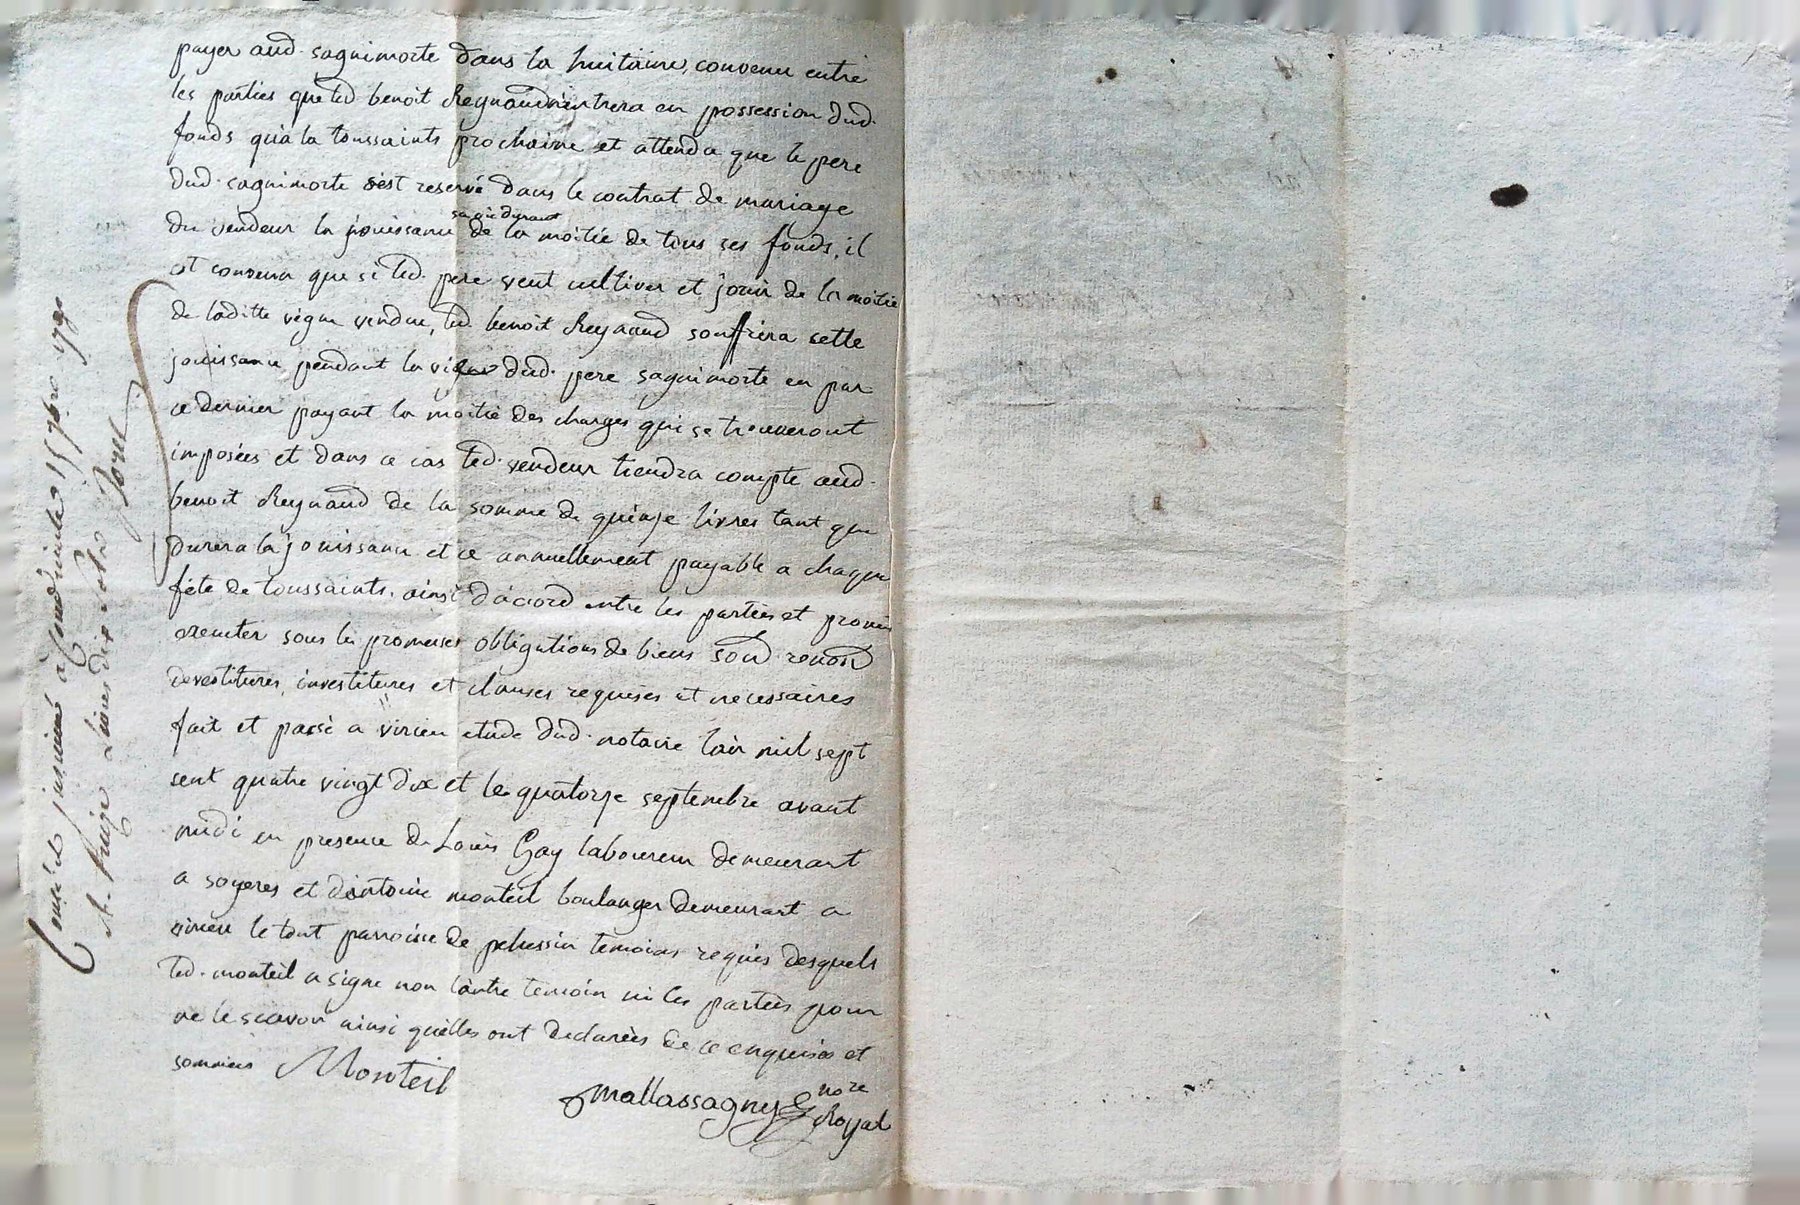 payer aud. saguimorte dans la huitaine, convenu entre
les parties que led benoit Reynaud n'entrera en possession dud.
fonds qu'a la toussaints prochaine et attendu que le pere
dud. saguimorte s'est reservé dans le contrat de mariage
sa vie durant
du vendeur la jouissance de la moitié de tous ses fonds, il
est convenu que si led. pere veut cultiver et jouir de la moitié
de laditte vigne vendue, led. benoit Reynaud souffrira cette
jouissance pendant la vie dud. pere saguimorte en par
ce dernier payant la moitié des charges qui se trouveront
imposées et dans ce cas led. vendeur tiendra compte aud.
benoit Reynaud de la somme de quinze livres tant que
durera la jouissance et ce annuellement payable a chaque
fête de toussaints. ainsi d'accord entre les parties et promis
executer sous les promesses obligations de biens soud. renond
devestitures, investitures et clauses requises et necessaires
fait et passé a virieu etude dud. notaire l'an mil sept
cent quatre vingt dix et le quatorze septembre avant
midi en presence de Louis Gay laboureur demeurant
a soyeres et d'antoine monteil boulanger demeurant a
virieu le tout parroisse de pelussin temoins requis desquels
led. monteil a signe non l'autre temoin ni les parties pour
ne le scavoir ainsi qu'elles ont declarées de ce enquises et
sommées Monteil
mallassagny nore
Royal
Controlé insinué à Condrieu le 15 7bre 1790